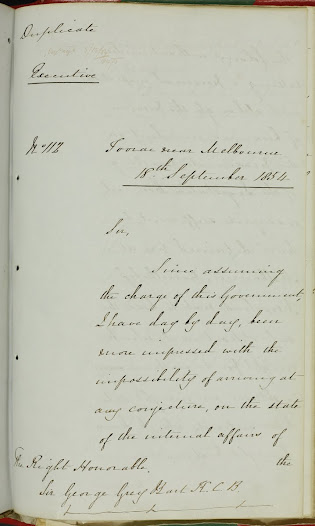 Duplicate
Executive
No 112
Toorac near Melbourne
18th September 1854
Sir,
Since assuming
the charge of this Government,
I have day by day, been
more impressed with the
impossibility of arriving at
any conjecture, on the state
of the internal affairs of
the
The Right Honorable,
Sir George Grey Bart K.C.B.